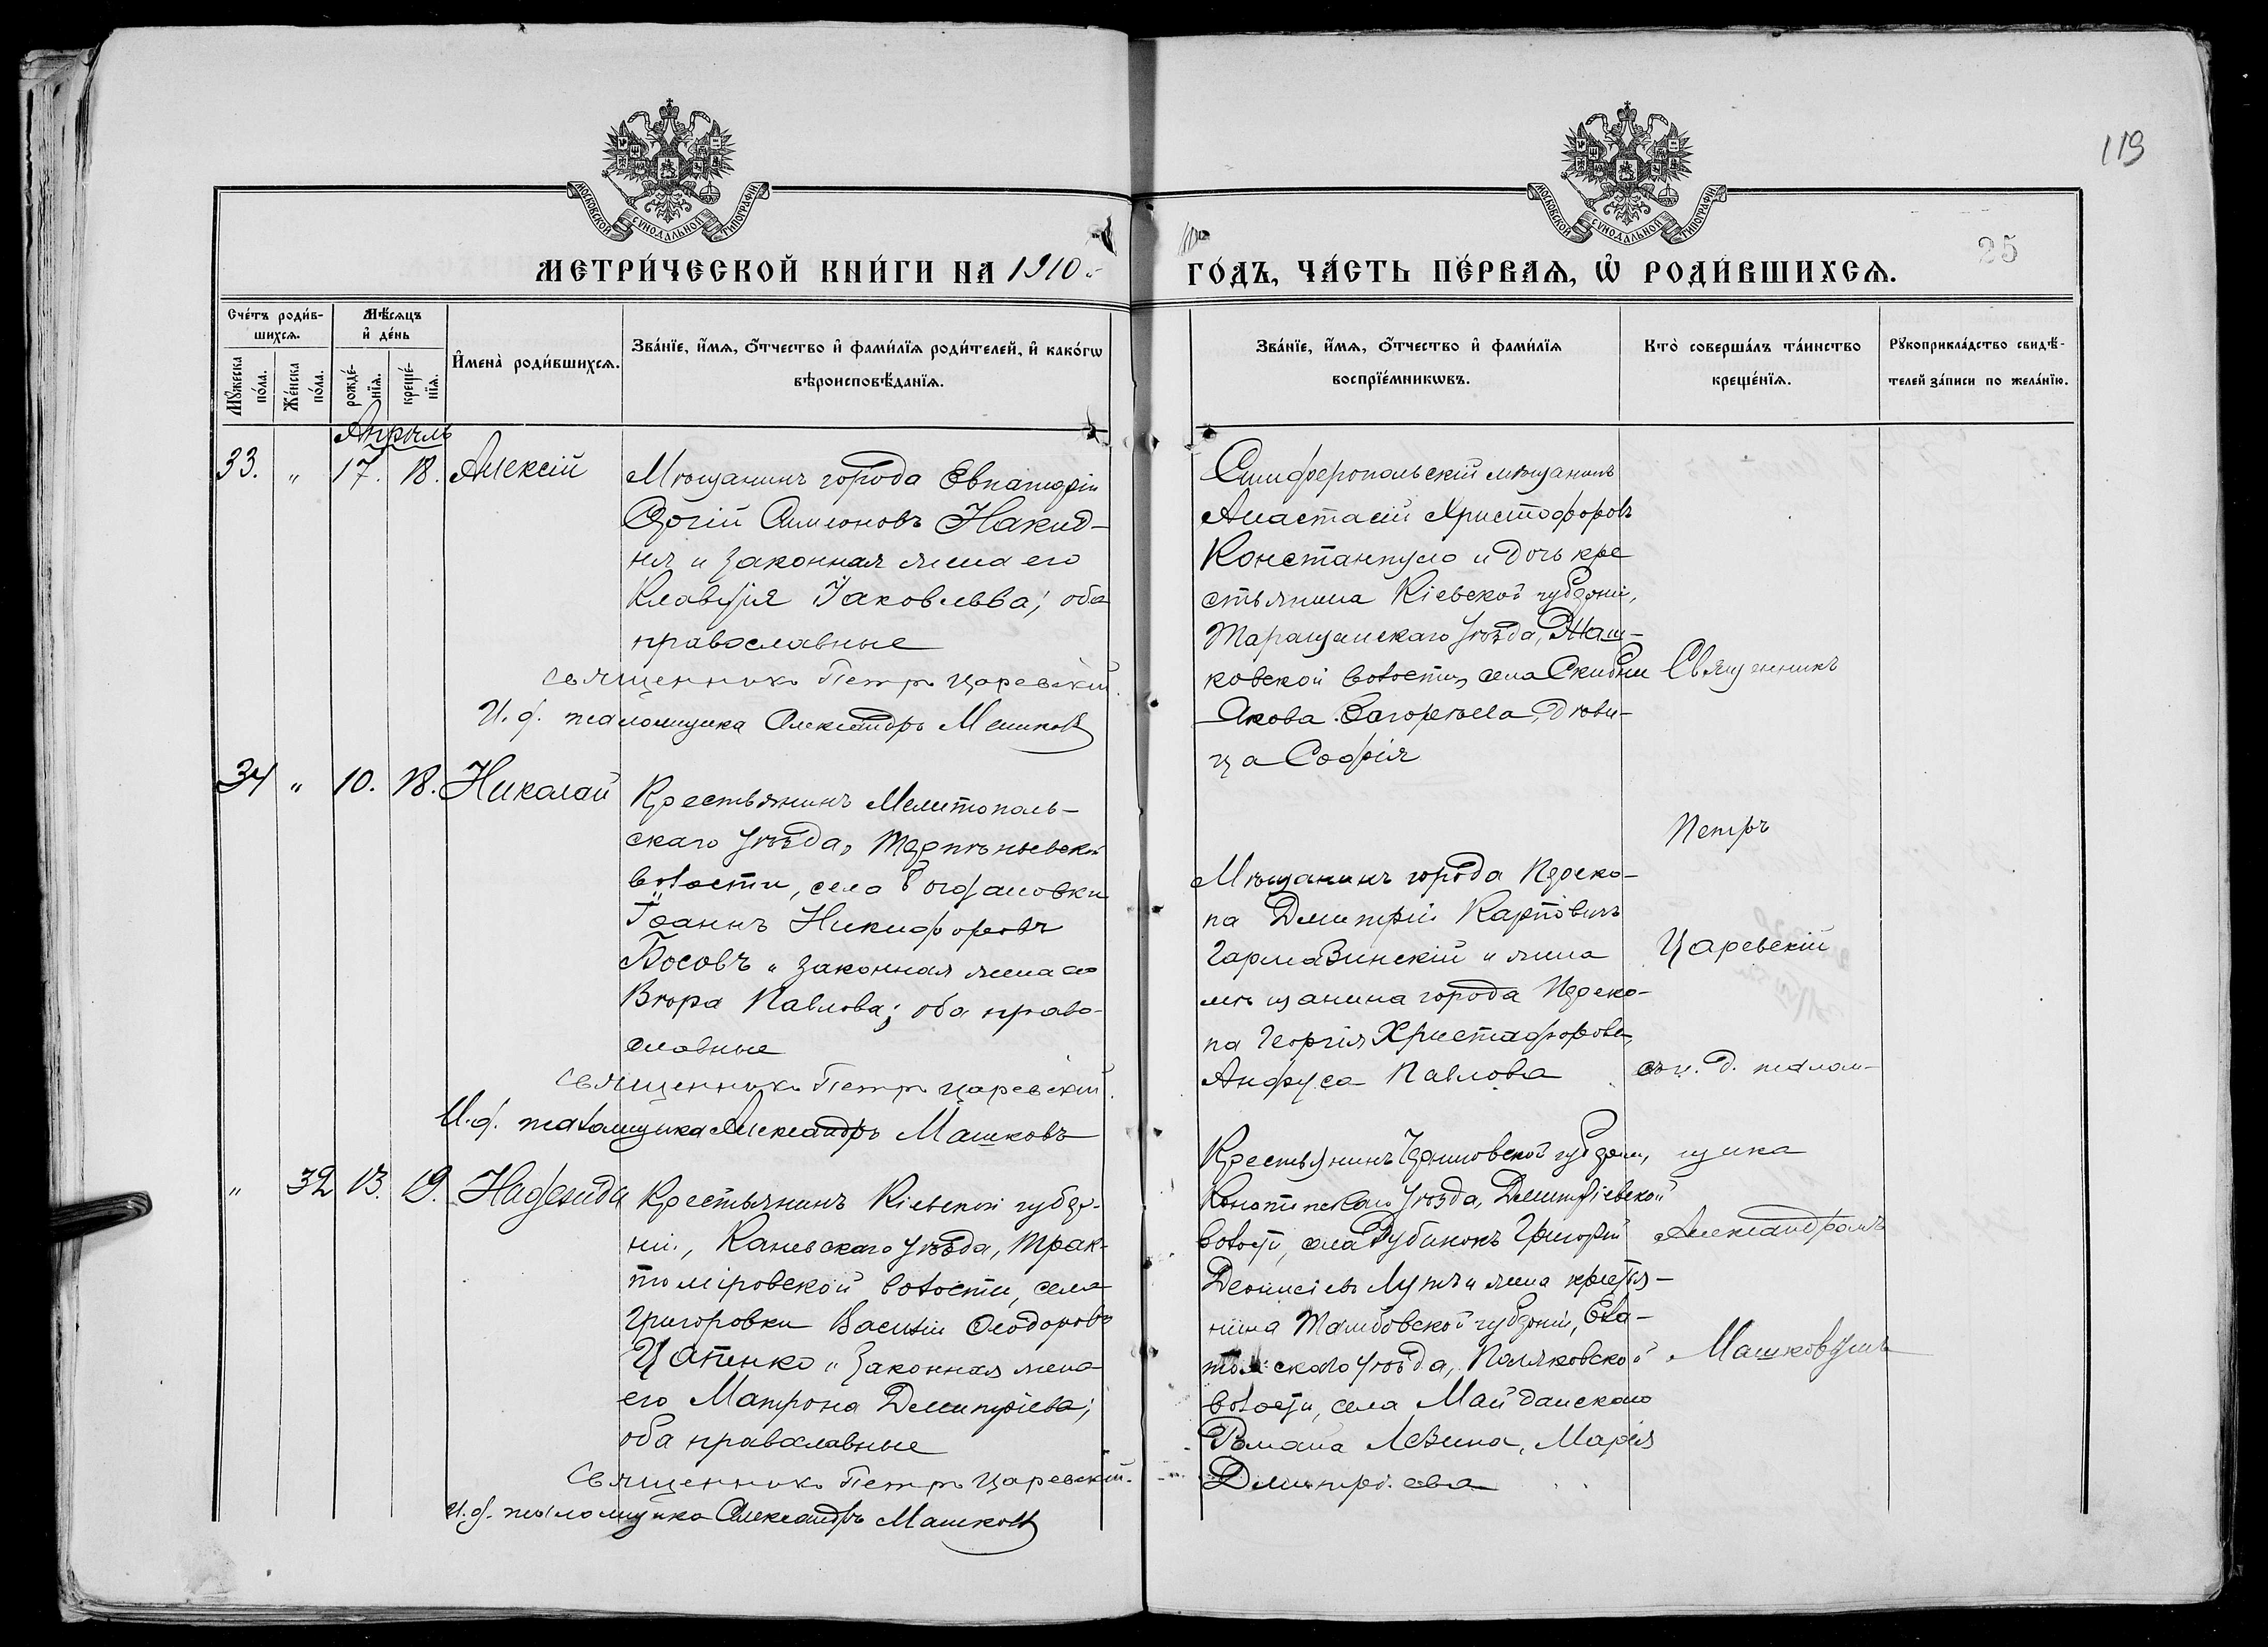 119
25
МОСКОВСКОЙ СУНОДАЛЬНОЙ ТИПОГРАФІИ
МОСКОВСКОЙ СУНОДАЛЬНОЙ ТИПОГРАФІИ
МЕТРИ́ЧЕСКОЙ КНИ́ГИ НА 1910
ГО́ДЪ, ЧА́СТЬ ПЕ́РВАѦ, Ѡ҆ РОДИ́ВШИХСѦ.
Сче́тъ роди́в-
шихсѧ.
Мꙋ́жеска
по́ла.
Же́нска
по́ла.
Мѣ́сѧцъ
и҆ де́нь
рожде́-
нїѧ.
креще́-
нїѧ.
И҆мена̀ роди́вшихсѧ.
Зва́нїе, и҆́мѧ, ѻ҆́тчество и҆ фами́лїѧ роди́телей, и҆ како́гѡ
вѣроисповѣ́данїѧ.
Зва́нїе, и҆́мѧ, ѻ҆́тчество и҆ фами́лїѧ
воспрїе́мникѡвъ.
Кто̀ соверша́лъ та́инство
креще́нїѧ.
Рꙋкоприкла́дство свидѣ́-
телей за́писи по жела́нїю.
Апрѣль
33. " 17. 18. Алексій
Мѣщанинъ города Евпаторіи
Сергій Симеоновъ Накид-
ня и законная жена его
Клавдія Іаковлева; оба
православные
Священникъ Петръ Царевскій.
И. д. псаломщика Александръ Машковъ
Симферопольскій мѣщанинъ
Анастасій Христофоровъ
Константуло и дочь кре
стьянина Кіевской губерніи,
Таращанскаго уѣзда, Жаш-
ковской волости, села Скибни
Якова Загорѣева, дѣви-
ца Софія
34 " 10. 18. Николай
Крестьянинъ Мелитополь-
скаго уѣзда, Терпѣньевской
волости, село Богдановки
Іоаннъ Никифоровъ
Босовъ и законная жена его
Вѣра Павлова; оба право-
славные
Священникъ Петръ Царевскій.
И. д. псаломщика Александръ Машковъ
Мѣщанинъ города Переко-
па Дмитрій Карповичъ
Гармазинскій и жена
мѣщанина города Переко-
па Георгія Христофорова
Анфуса Павлова
" 32 13. 19. Надежда
Крестьянинъ Кіевской губер-
ніи, Каневскаго уѣзда, Трак-
томіровской волости, села
Григоровки Василій Ѳеодоровъ
Цапенко и законная жена
его Матрона Димитріева;
оба православные
Священникъ Петръ Царевскій.
И. д. псаломщика Александръ Машковъ
Крестьянинъ Черниговской губерніи,
Конотопскаго уѣзда, Дмитріевской
волости, села Рубанокъ Григорій
Деонисіевъ Лутъ и жена крестья-
нина Тамбовской губерніи, Ела-
томскаго уѣзда, Поляковской
волости, села Майданскаго
Романа Левина, Марія
Димитріева
Священникъ
Петръ
Царевскій
съ и. д. псалом-
щика
Александромъ
Машковымъ